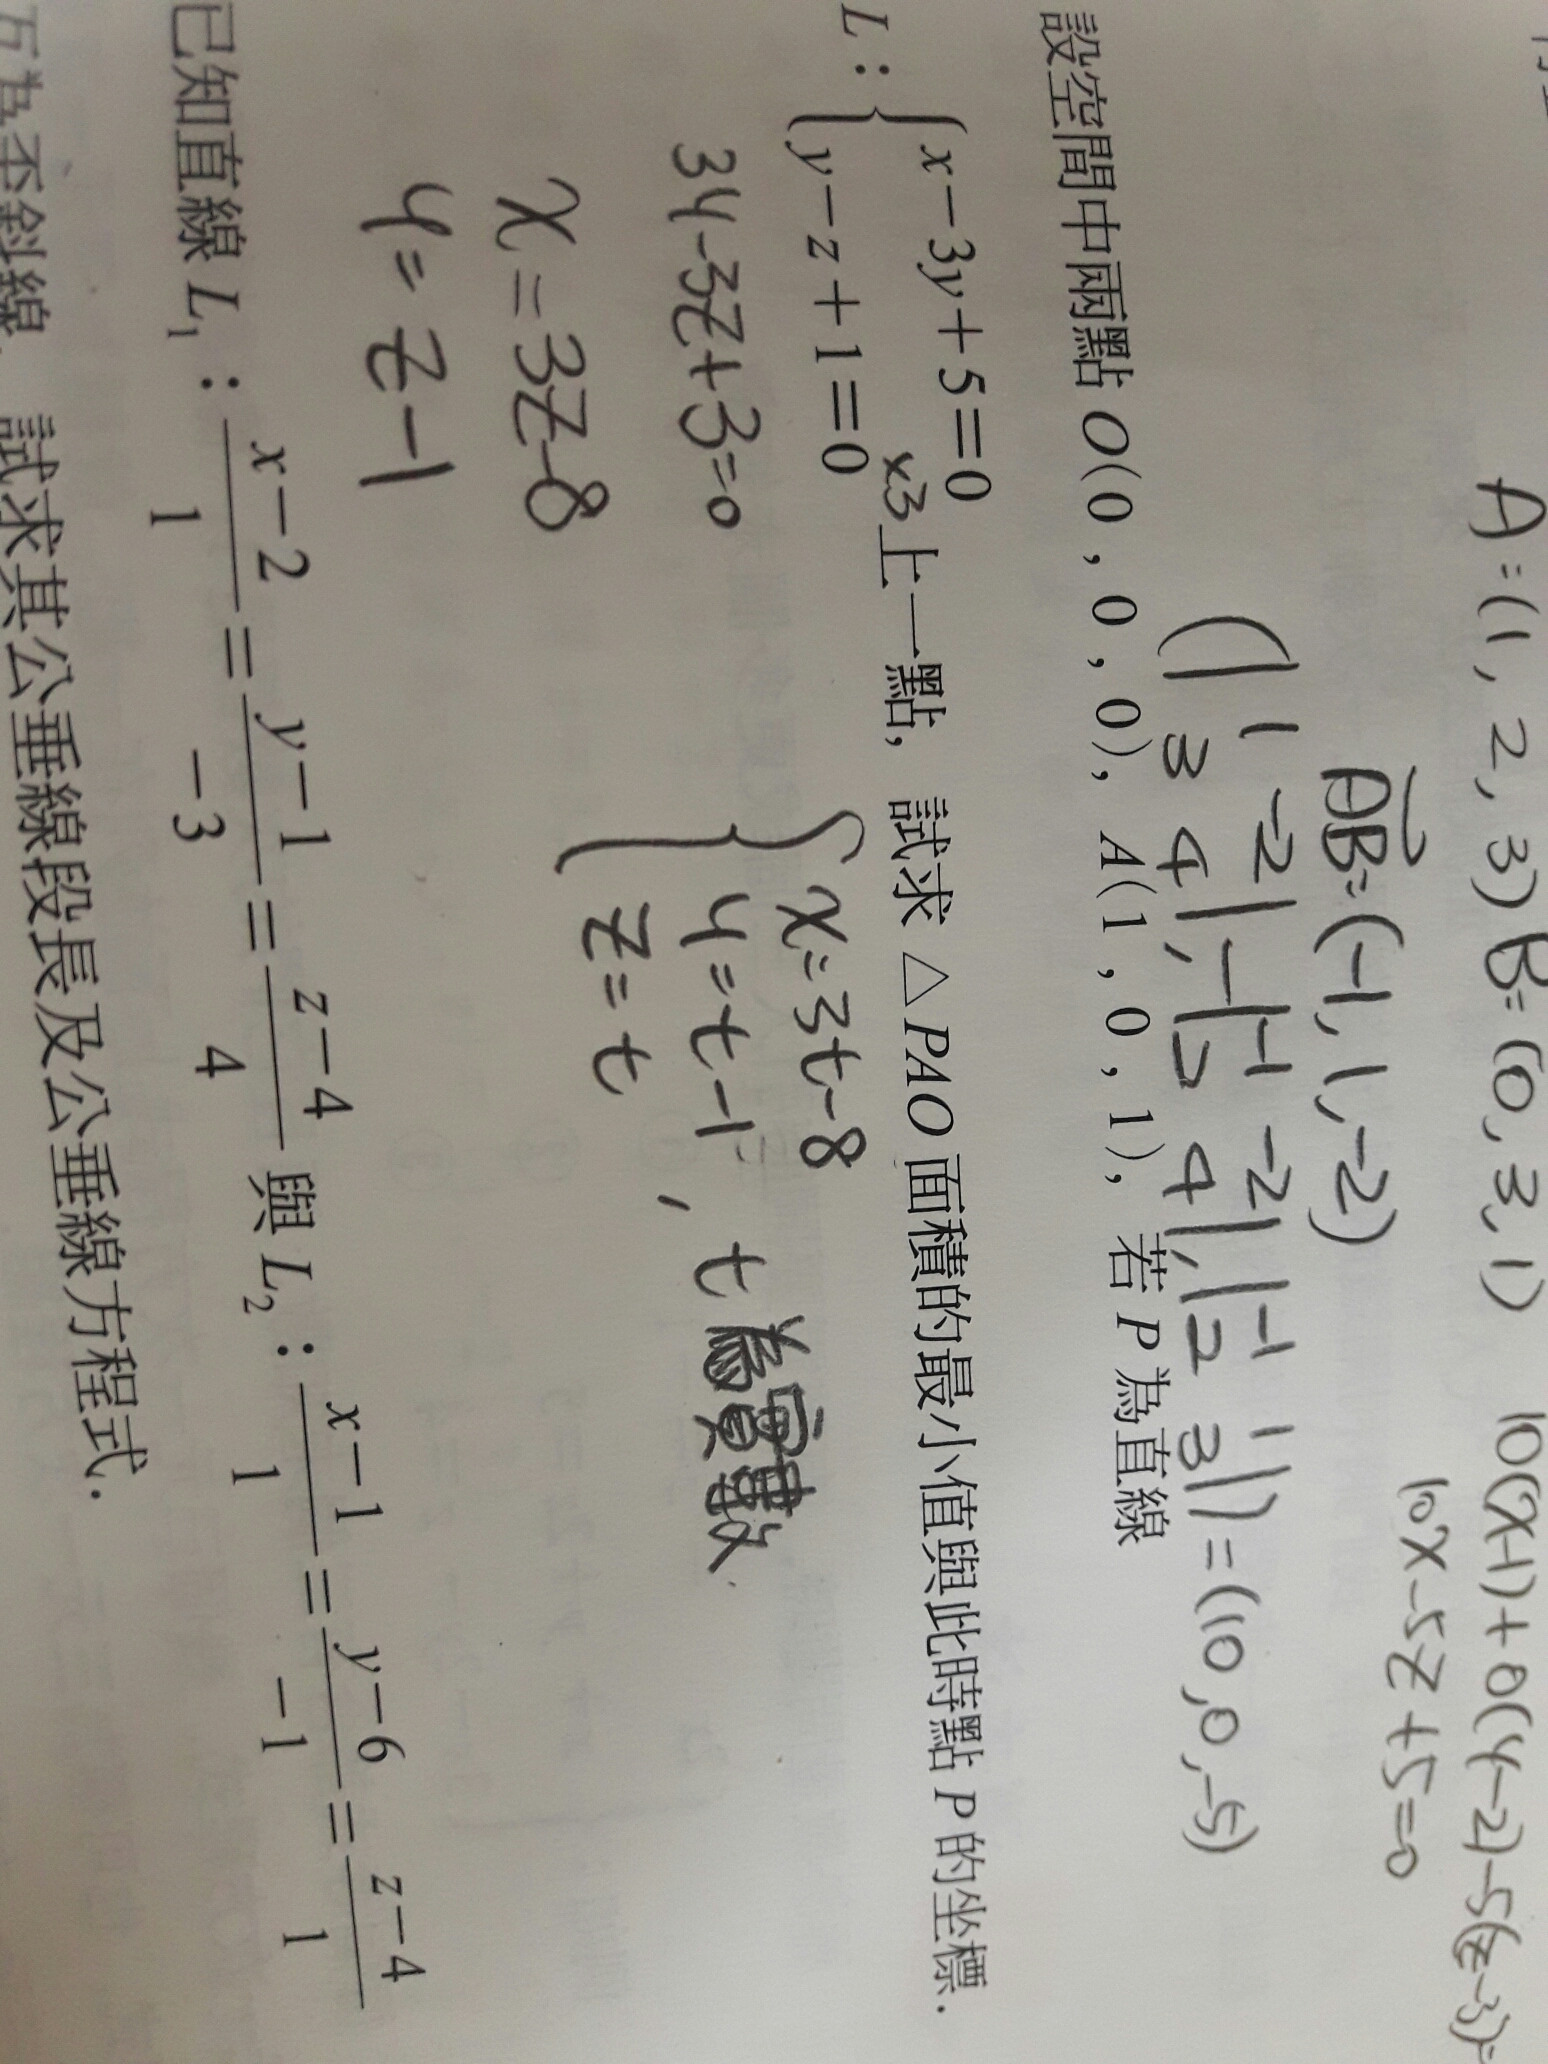 A=(1,2,3) B=(0,3,1)
10(x-1)+0(y-2)-5(z-3)=
10x-5z+5=0
AB=(-1,1,-2)
(|1 -2| |-1 -2| |-1 1|
|3 4|,-|2 4|,|2 3|)=(10,0,-5)
設空間中兩點 O(0,0,0), A(1,0,1), 若 P 為直線
L:{x-3y+5=0
y-z+1=0 x3 上一點, 試求 △PAO 面積的最小值與此時點 P 的坐標.
3y-3z+3=0
x=3z-8
y=z-1
{x=3t-8
y=t-1, t為實數
z=t
已知直線 L₁:(x-2)/1=(y-1)/-3=(z-4)/4 與 L₂:(x-1)/1=(y-6)/-1=(z-4)/1
互為歪斜線, 試求其公垂線段長及公垂線方程式.